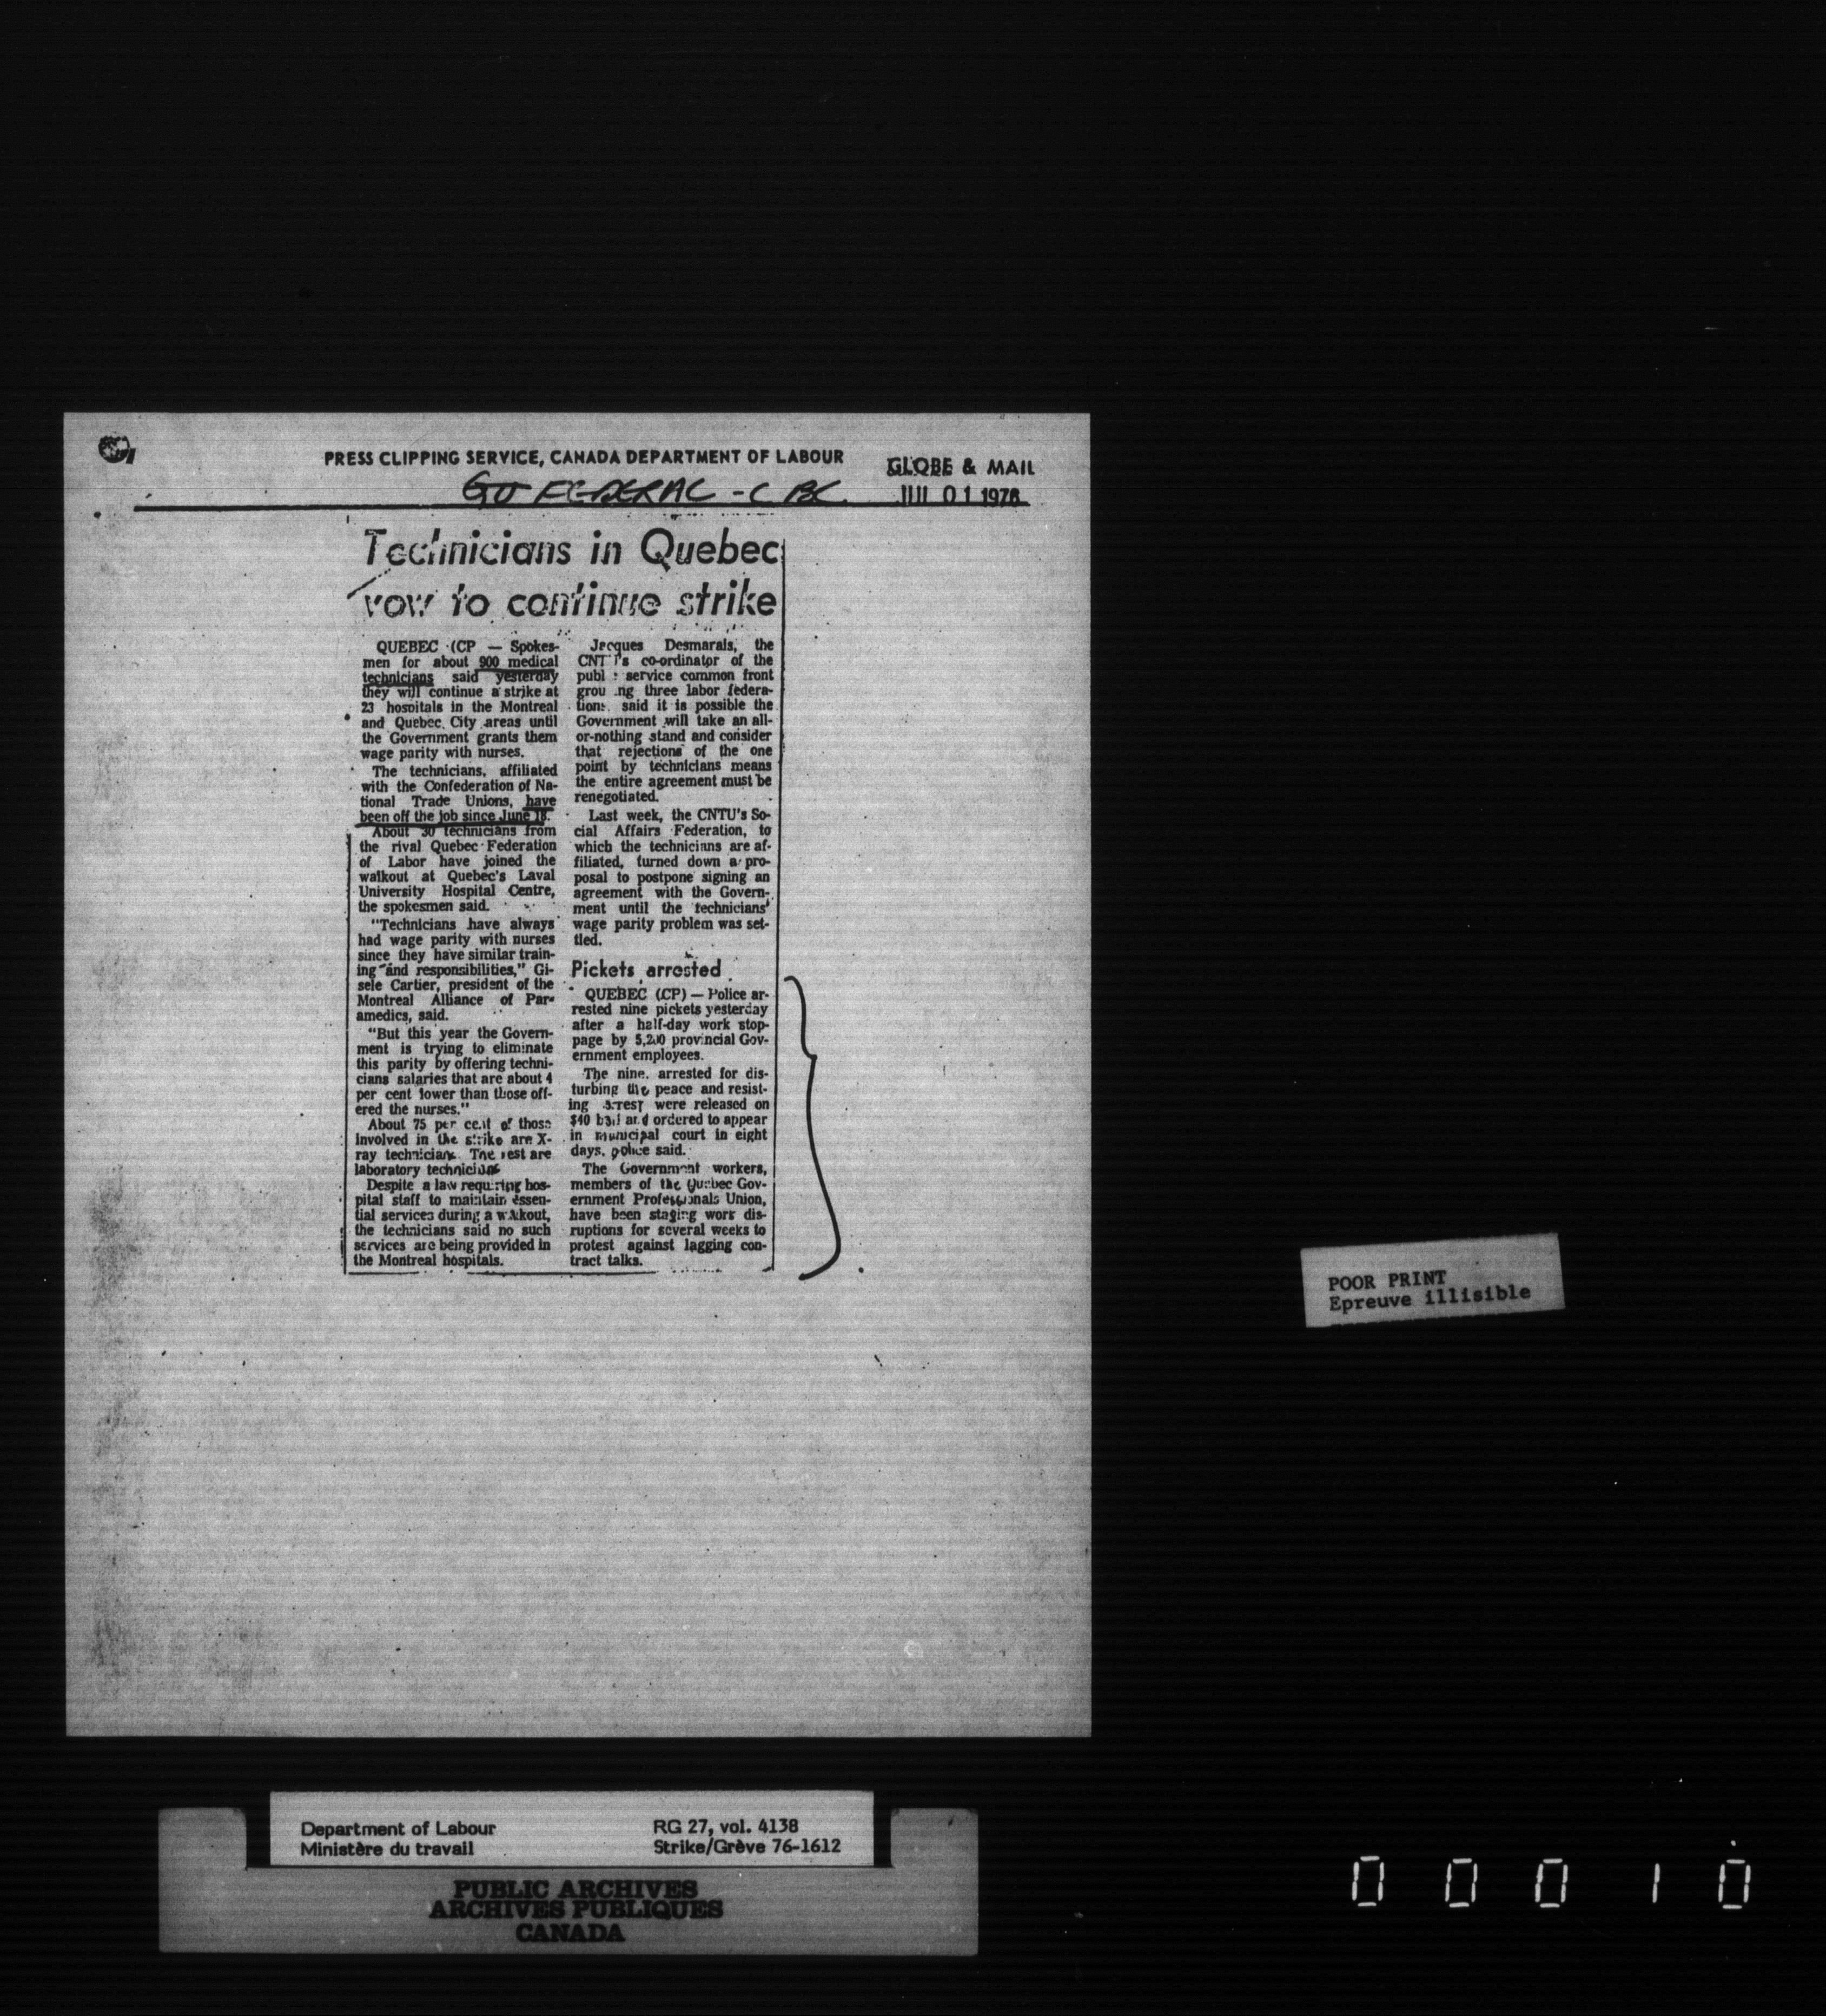 PRESS CLIPPING SERVICE, CANADA DEPARTMENT OF LABOUR
GLOBE & MAIL
FEDERAL - CBC
JUL 01 1976
Technicians in Quebec
vow to continue strike
QUEBEC (CP — Spokes-
men for about 900 medical
technicians said yesterday
they will continue a strike at
23 hospitals in the Montreal
and Quebec City areas until
the Government grants them
wage parity with nurses.
The technicians, affiliated
with the Confederation of Na-
tional Trade Unions, have
been off the job since June 18.
About 30 technicians from
the rival Quebec Federation
of Labor have joined the
walkout at Quebec's Laval
University Hospital Centre,
the spokesmen said.
"Technicians have always
had wage parity with nurses
since they have similar train-
ing and responsibilities," Gi-
sele Cartier, president of the
Montreal Alliance of Par-
amedics, said.
"But this year the Govern-
ment is trying to eliminate
this parity by offering techni-
cians salaries that are about 4
per cent lower than those off-
ered the nurses."
About 75 per cent of those
involved in the strike are X-
ray technicians. The rest are
laboratory technicians
Despite a law requiring hos-
pital staff to maintain essen-
tial services during a walkout,
the technicians said no such
services are being provided in
the Montreal hospitals.
Jacques Desmarais, the
CNTU's co-ordinator of the
public service common front
grouping three labor federa-
tions, said it is possible the
Government will take an all-
or-nothing stand and consider
that rejections of the one
point by technicians means
the entire agreement must be
renegotiated.
Last week, the CNTU's So-
cial Affairs Federation, to
which the technicians are af-
filiated, turned down a pro-
posal to postpone signing an
agreement with the Govern-
ment until the technicians'
wage parity problem was set-
tled.
Pickets arrested
QUEBEC (CP) — Police ar-
rested nine pickets yesterday
after a half-day work stop-
page by 5,200 provincial Gov-
ernment employees.
The nine, arrested for dis-
turbing the peace and resist-
ing arrest were released on
$40 bail and ordered to appear
in municipal court in eight
days, police said.
The Government workers,
members of the Quebec Gov-
ernment Professionals Union,
have been staging work dis-
ruptions for several weeks to
protest against lagging con-
tract talks.
POOR PRINT
Epreuve illisible
Department of Labour
Ministère du travail
RG 27, vol. 4138
Strike/Grève 76-1612
PUBLIC ARCHIVES
ARCHIVES PUBLIQUES
CANADA
0 0 0 1 0